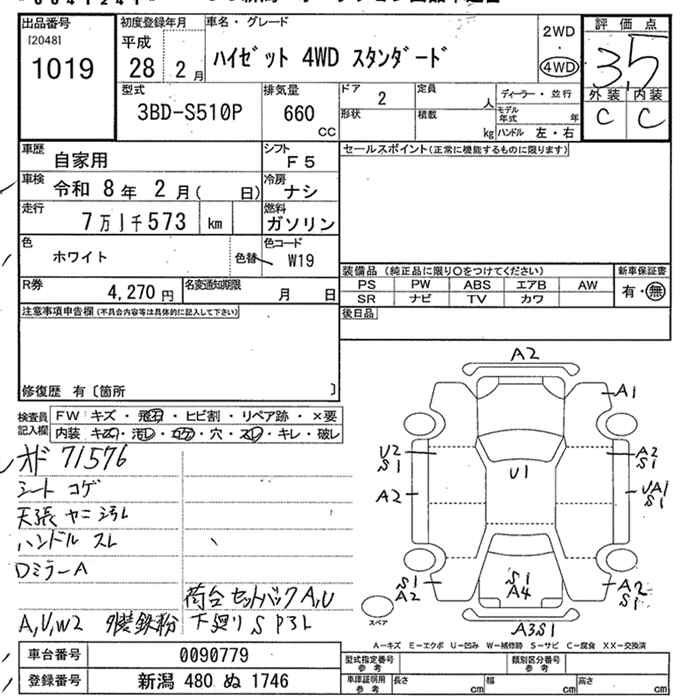 出品番号 初度登録年月 車名・グレード 2WD 評価点
[2048] 平成 ・
1019 28年 2月 ハイゼット 4WD スタンダード 4WD 3.5
型式 排気量 ドア 2 定員 人 ディーラー・並行 外装 内装
3BD-S510P 660 cc 形状 積載 kg モデル年式 年 C C
ハンドル 左・右
車歴 自家用 シフト F5 セールスポイント(正常に機能するものに限ります)
車検 令和 8年 2月( 日) 冷房 ナシ
走行 7万1千573 km 燃料 ガソリン
色 ホワイト 色替 色コード W19
装備品 (純正品に限り○をつけてください) 新車保証書
R券 4,270円 名変通知期限 月 日 PS PW ABS エアB AW 有・無
SR ナビ TV カワ
注意事項申告欄(不具合内容等は具体的に記入して下さい) 後日品
修復歴 有〔箇所 〕
検査員記入欄 FW キズ・飛石・ヒビ割・リペア跡・×要
内装 キズ・汚レ・コゲ・穴・スレ・キレ・破レ
オド 71576
シート コゲ
天張 ヤニ 汚レ
ハンドル スレ
Dミラー A
荷台 セットバック A,U
A,U,W2 外装鉄粉 下廻り S P3L
A2
A1
U2
S1
A2
U1
A2
S1
UA1
S1
S1
A2
S1
A4
A2
S1
A3S1
スペア
A-キズ E-エクボ U-凹み W-補修跡 S-サビ C-腐食 XX-交換済
車台番号 0090779 型式指定番号 参考 類別区分番号 参考
登録番号 新潟 480 ぬ 1746 車庫証明用 参考 長さ cm 幅 cm 高さ cm